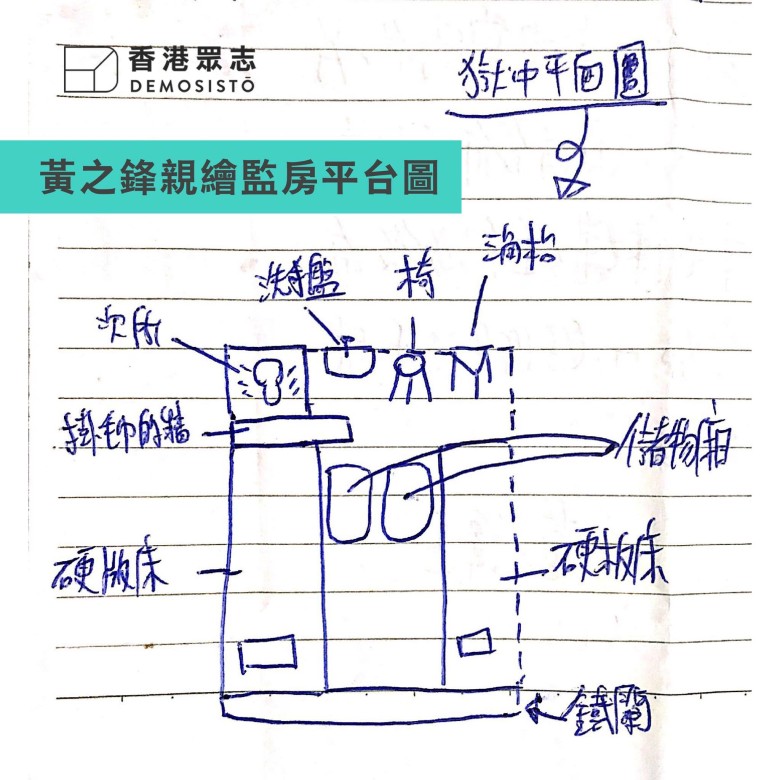 香港眾志
DEMOSISTŌ
獄中平面圖
黃之鋒親繪監房平台圖
洗手盤
椅
次所
掛毛巾的牆
儲物廂
硬版床
硬板床